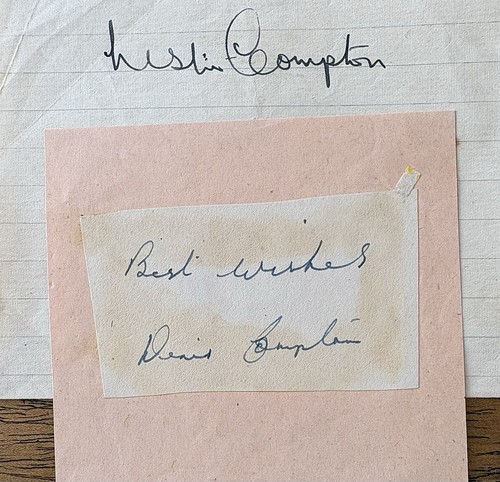 Leslie Compton
Best wishes
Denis Compton